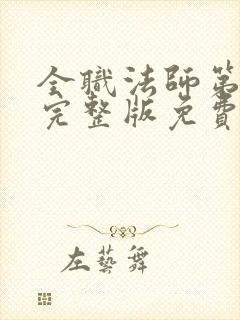 全職法師第
完整版免費
左藝舞